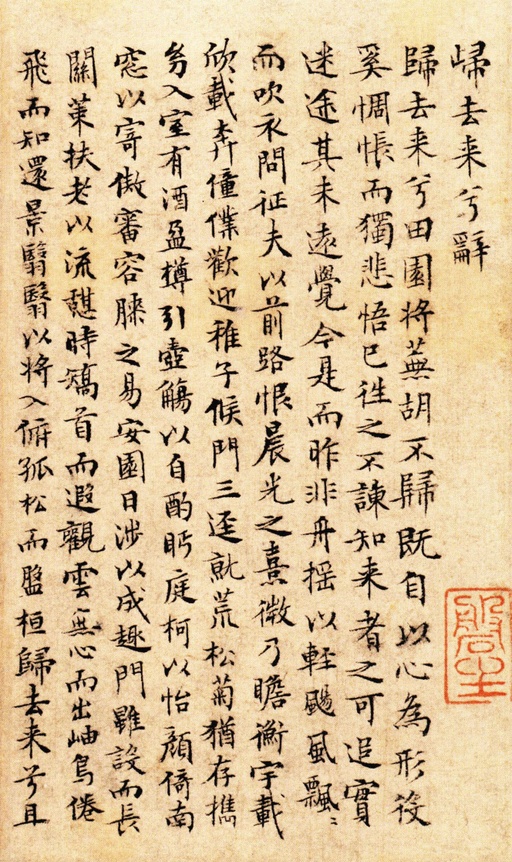 歸去来兮辭
歸去来兮田園将蕪胡不歸既自以心為形役
奚惆悵而獨悲悟已徃之不諫知来者之可追實
迷途其未遠覺今是而昨非舟揺以輕颺風飄〻
而吹衣問征夫以前路恨晨光之熹微乃瞻衡宇載
欣載奔僮僕歡迎稚子候門三迳就荒松菊猶存攜
幼入室有酒盈樽引壺觴以自酌眄庭柯以怡顔倚南
窓以寄傲審容膝之易安園日涉以成趣門雖設而長
關策扶老以流憩時矯首而遐觀雲無心而出岫鳥倦
飛而知還景翳翳以将入俯孤松而盤桓歸去来兮且